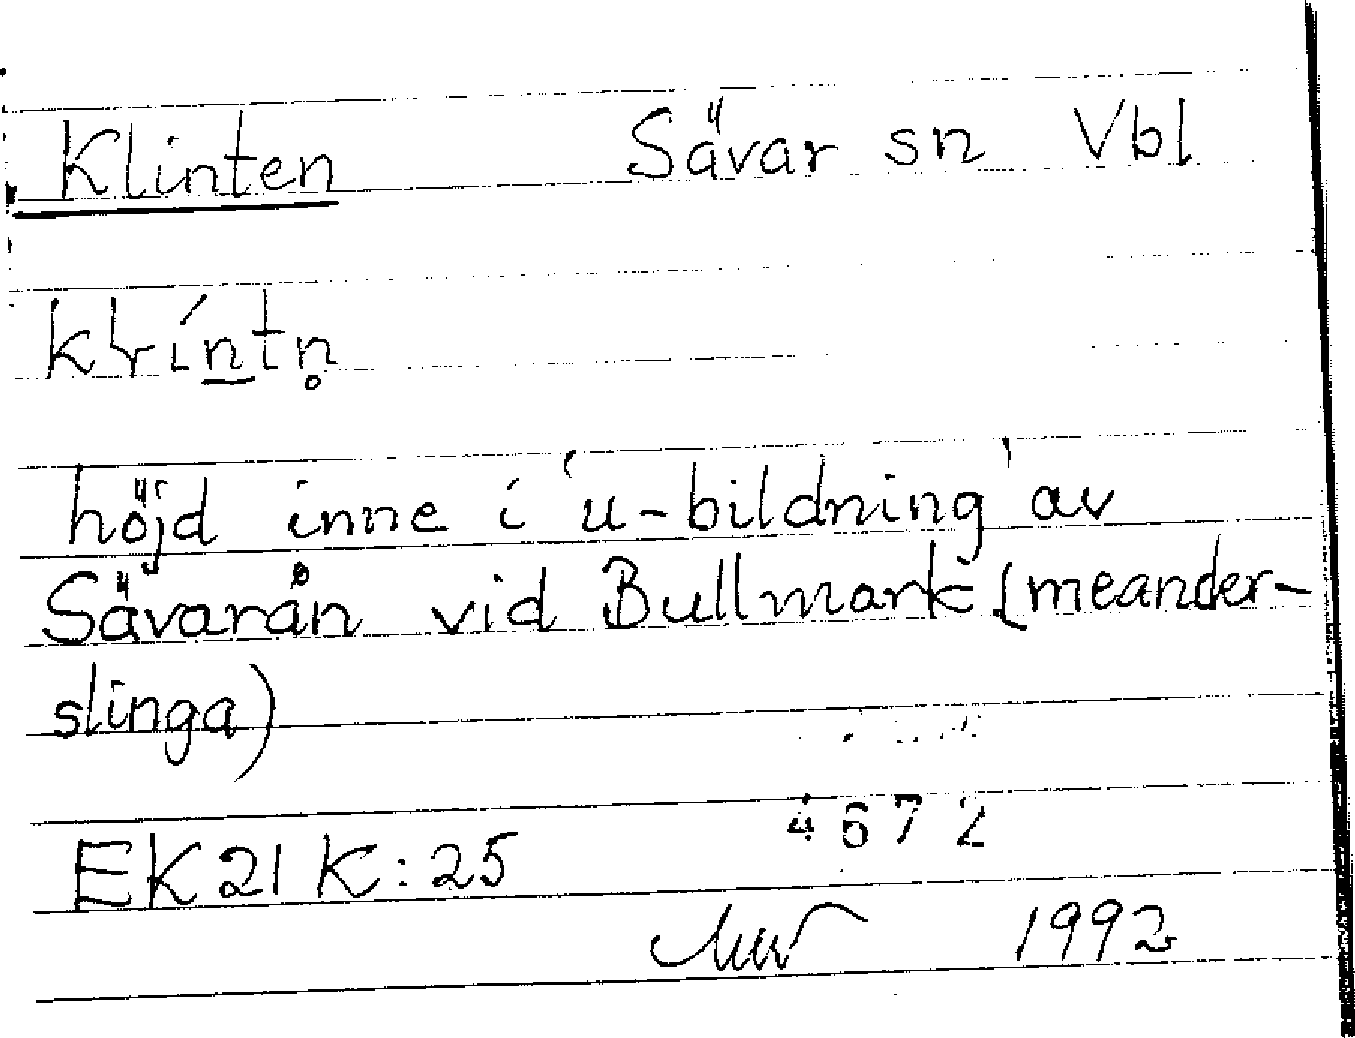 Klinten Sävar sn Vbl
höjd inne i u-bildning av
Sävarån vid Bullmark (meander-
slinga)
4672
EK 21 K:25
1992